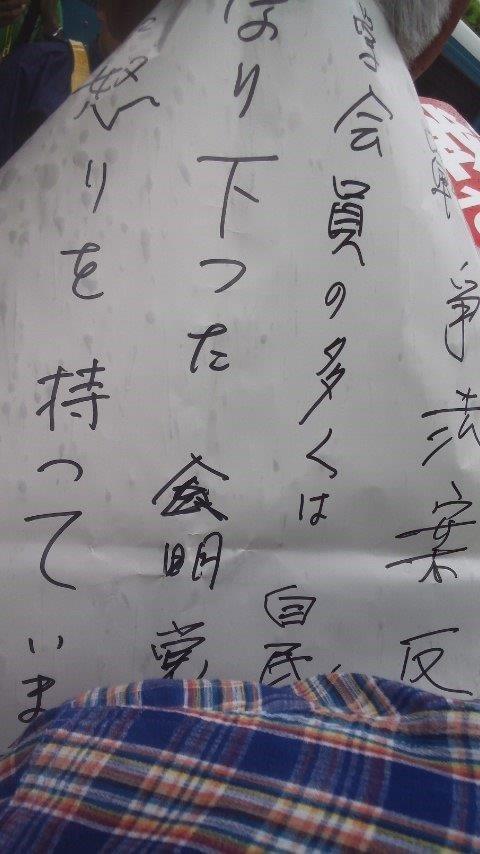 争法案 反
会員の多くは 自民
なり下った 公明党
怒りを持っていま